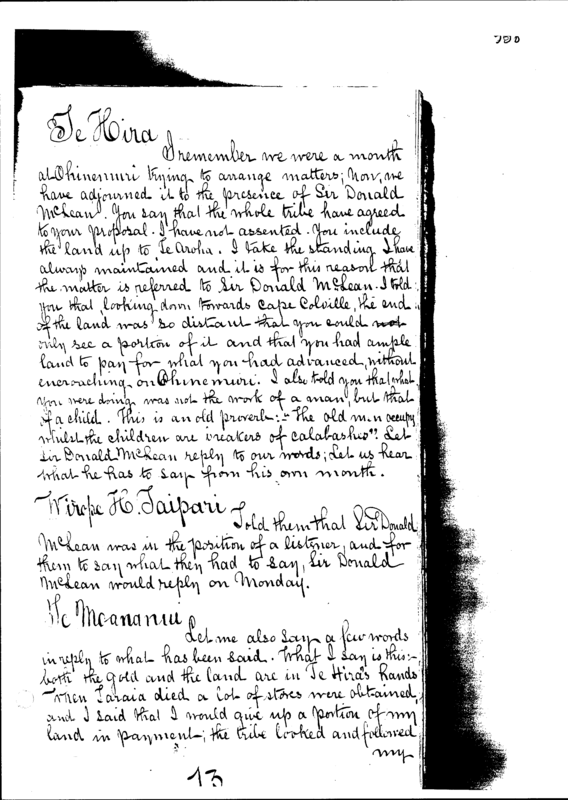 790
Te Hira
I remember we were a month
at Ohinemuri trying to arrange matters; Now, we
have adjourned it to the presence of Sir Donald
McLean. You say that the whole tribe have agreed
to your proposal. I have not assented. You include
the land up to Te Aroha. I take the standing I have
always maintained and it is for this reason that
the matter is referred to Sir Donald McLean. I told
you that looking down towards Cape Colville, the end
of the land was so distant that you could not
only see a portion of it and that you had ample
land to pay for what you had advanced, without
encroaching on Ohinemuri. I also told you that what
you were doing was not the work of a man, but that
of a child. This is an old proverb:- "The old men occupy
whilst the children are breakers of calabashes". Let
Sir Donald McLean reply to our words; Let us hear
what he has to say from his own mouth.
Wirope H. Taipari
Told them that Sir Donald
McLean was in the position of a listener, and for
them to say what they had to say, Sir Donald
McLean would reply on Monday.
Te Moananui
Let me also say a few words
in reply to what has been said. What I say is this:-
both the gold and the land are in Te Hira's hands
When Taraia died a lot of stores were obtained,
and I said that I would give up a portion of my
land in payment; the tribe looked and followed
my
13